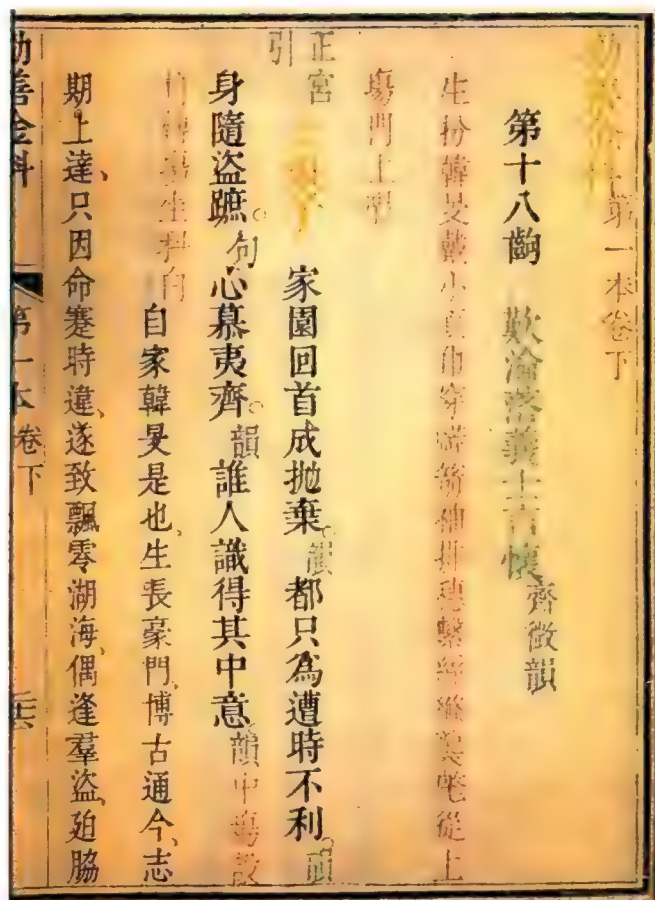 第一本卷下
第十八齣 歎淪落義士言懷 齊微韻
生扮韓旻戴小頁巾穿箭袖排穗繫從上
場門上唱
正宮引
家園回首成抛棄韻都只為遭時不利韻
身隨盜蹠。句心慕夷齊。韻誰人識得其中意韻中場設
生科白
自家韓旻是也、生長豪門、博古通今、志
期上達、只因命蹇時違、遂致飄零湖海、偶逢羣盜、廹脇
勸善金科 第一本卷下